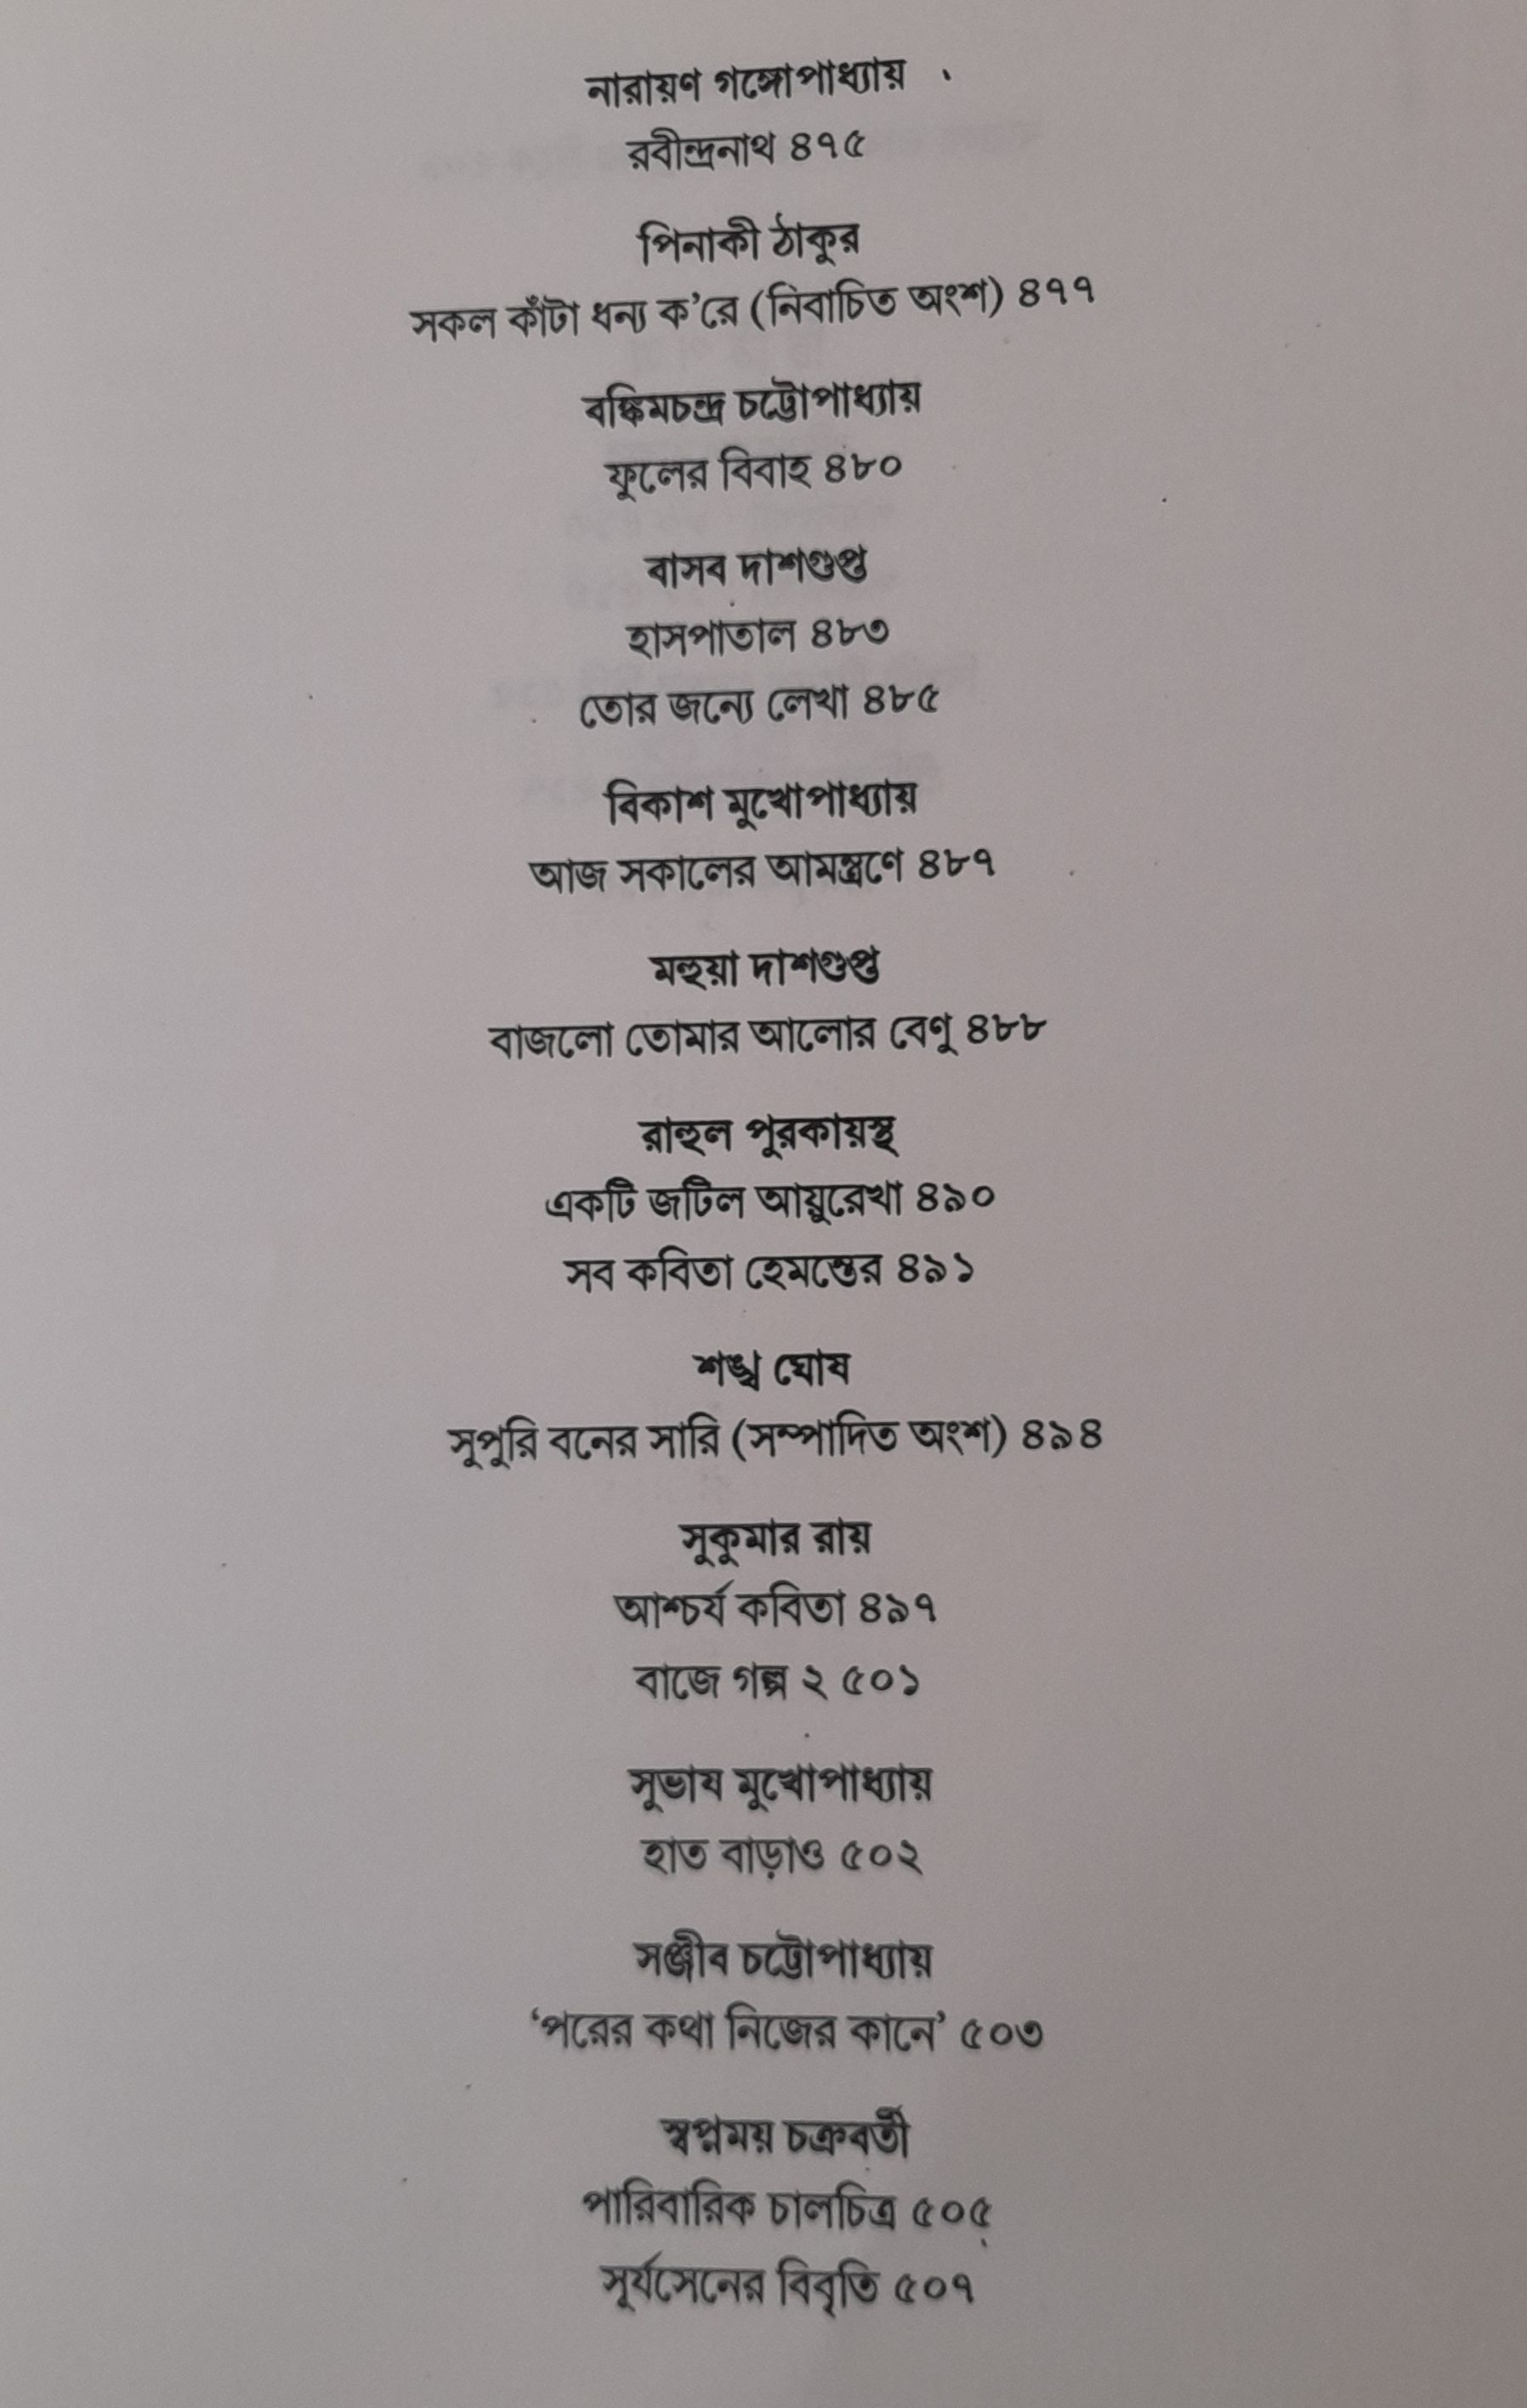 নারায়ণ গঙ্গোপাধ্যায়
রবীন্দ্রনাথ ৪৭৫
পিনাকী ঠাকুর
সকল কাঁটা ধন্য ক’রে (নিবাচিত অংশ) ৪৭৭
বঙ্কিমচন্দ্র চট্টোপাধ্যায়
ফুলের বিবাহ ৪৮০
বাসব দাশগুপ্ত
হাসপাতাল ৪৮৩
তোর জন্যে লেখা ৪৮৫
বিকাশ মুখোপাধ্যায়
আজ সকালের আমন্ত্রণে ৪৮৭
মহুয়া দাশগুপ্ত
বাজলো তোমার আলোর বেণু ৪৮৮
রাহুল পুরকায়স্থ
একটি জটিল আয়ুরেখা ৪৯০
সব কবিতা হেমন্তের ৪৯১
শঙ্খ ঘোষ
সুপুরি বনের সারি (সম্পাদিত অংশ) ৪৯৪
সুকুমার রায়
আশ্চর্য কবিতা ৪৯৭
বাজে গল্প ২ ৫০১
সুভাষ মুখোপাধ্যায়
হাত বাড়াও ৫০২
সঞ্জীব চট্টোপাধ্যায়
‘পরের কথা নিজের কানে’ ৫০৩
স্বপ্নময় চক্রবর্তী
পারিবারিক চালচিত্র ৫০৫
সূর্যসেনের বিবৃতি ৫০৭